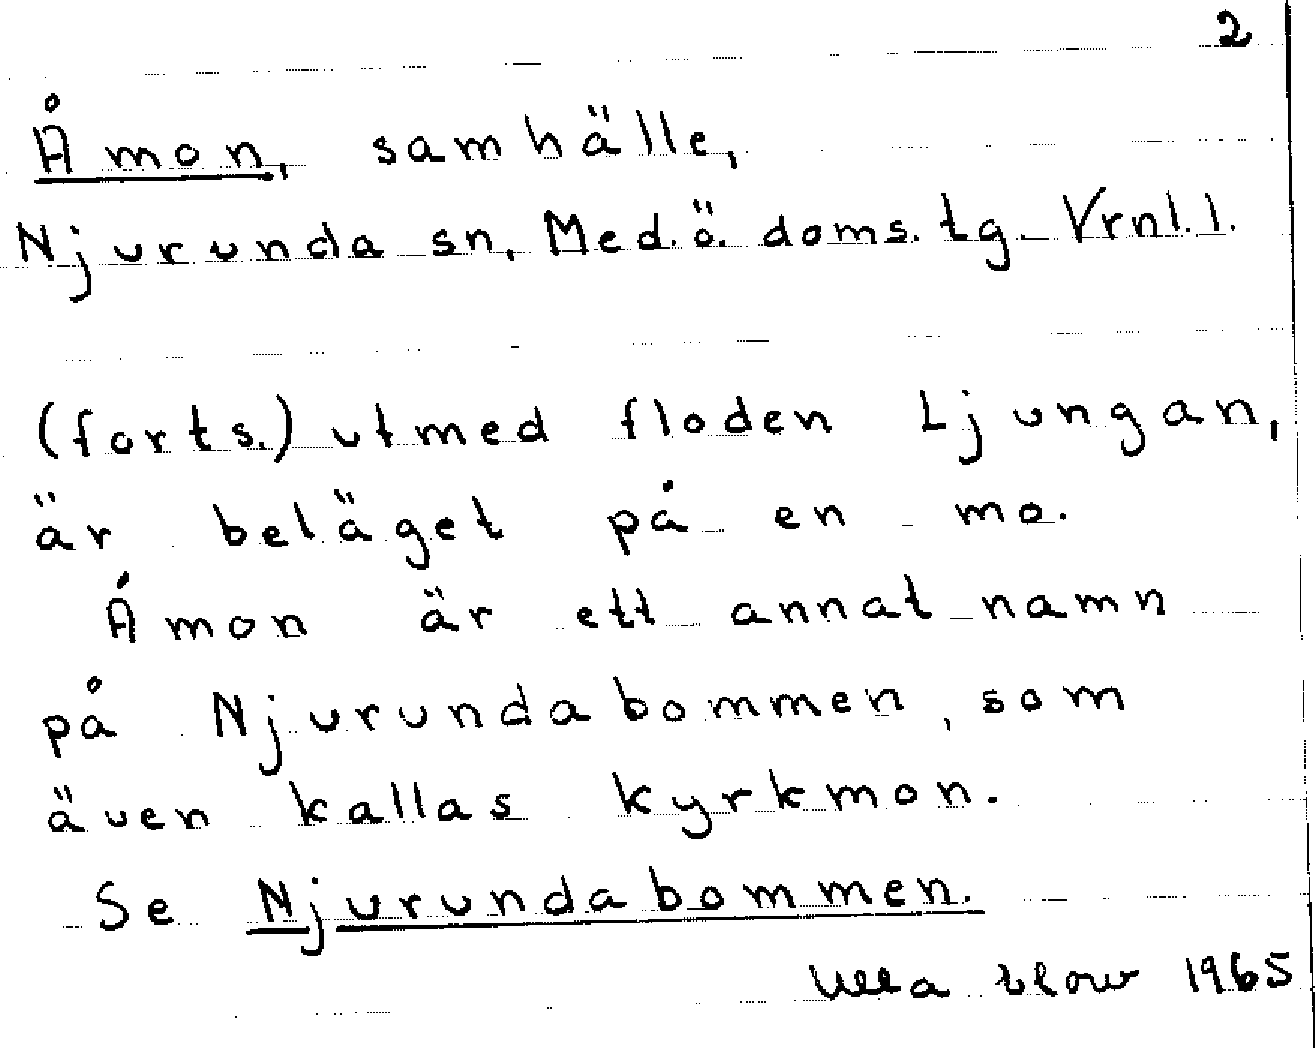 2
Åmon, samhälle,
Njurunda sn, Med. ö. doms. tg. Vrnl. l.
(forts.) utmed floden Ljungan,
är beläget på en mo.
Åmon är ett annat namn
på Njurundabommen, som
även kallas kyrkmon.
Se Njurundabommen.
Ulla 1965